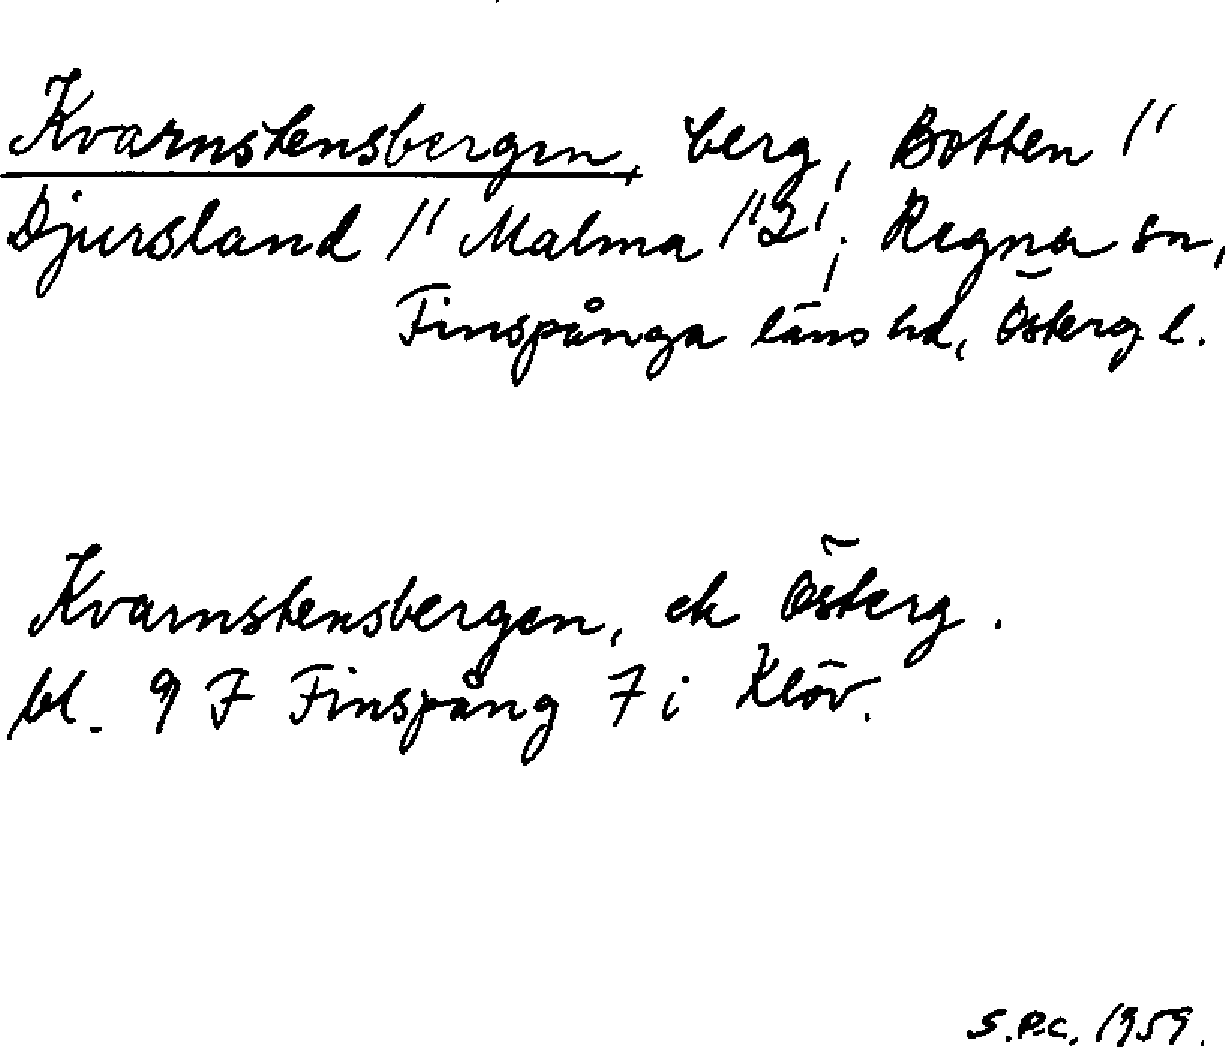 Kvarnstensbergen, berg, Botten 1/1
Djursland 1/1 Malma 1/1 2/1, Regna sn,
Finspånga läns hd, Österg l.
Kvarnstensbergen, ek Österg.
bl. 9 F Finspång 7 i Klöv.
S.P.C. 1959.